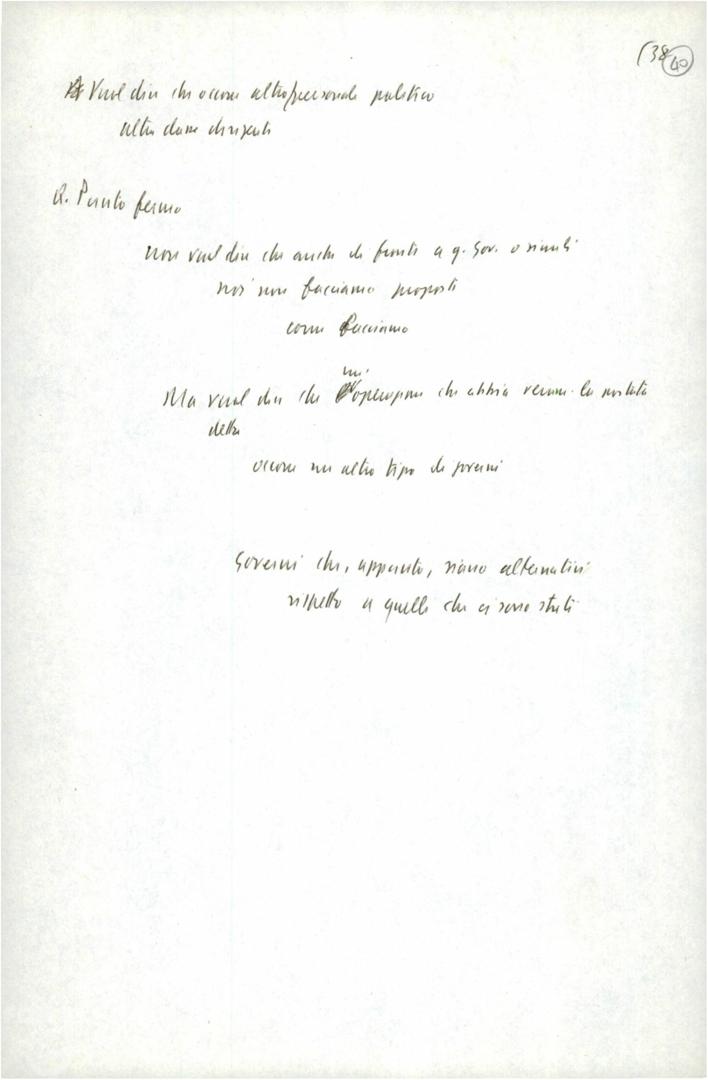 (38 40
Vuol dire che occorre altro personale politico
altra classe dirigente
Q. Punto fermo
non vuol dire che anche di fronte a q. Gov. o simili
noi non facciamo proposte
come facciamo
un'
Ma vuol dire che operazione che abbia veram. la portata
detta
occorre un altro tipo di governi
Governi che, appunto, siano alternativi
rispetto a quelli che ci sono stati